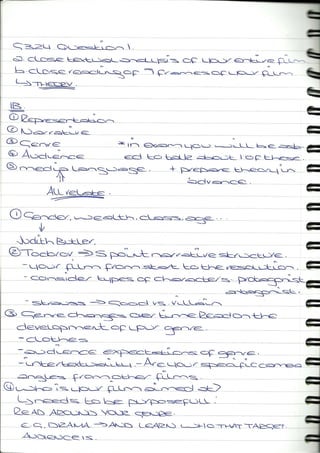 G324 Question 1.
a. close textual analysis of your entire film
b. close reading of 7 frames of your film
↳ THEORY.
1B.
① Representation
② Narrative
③ Genre * in exam you will be ask-
④ Audience ed to talk about 1 of these.
⑤ media language. + prepare theory in
advance.
All relate.
① Gender, wealth, class, age...
Judith Butler.
② Todorov → 5 point narrative structure.
- your film from start to the resolution.
- consider types of characters. protagonist
antagonist.
- strauss → Good vs. villain
③ Genre changes over time. Read on the
development of your genre.
- clothes
- audience expectations of genre.
- intertextuality - Are your specific camera
angles from other films.
④ who is your film aimed at?
↳ needs to be purposefull!
READ AROUND YOUR GENRE.
E.G. DRAMA → AND LEARN WHO THAT TARGET
AUDIENCE IS.